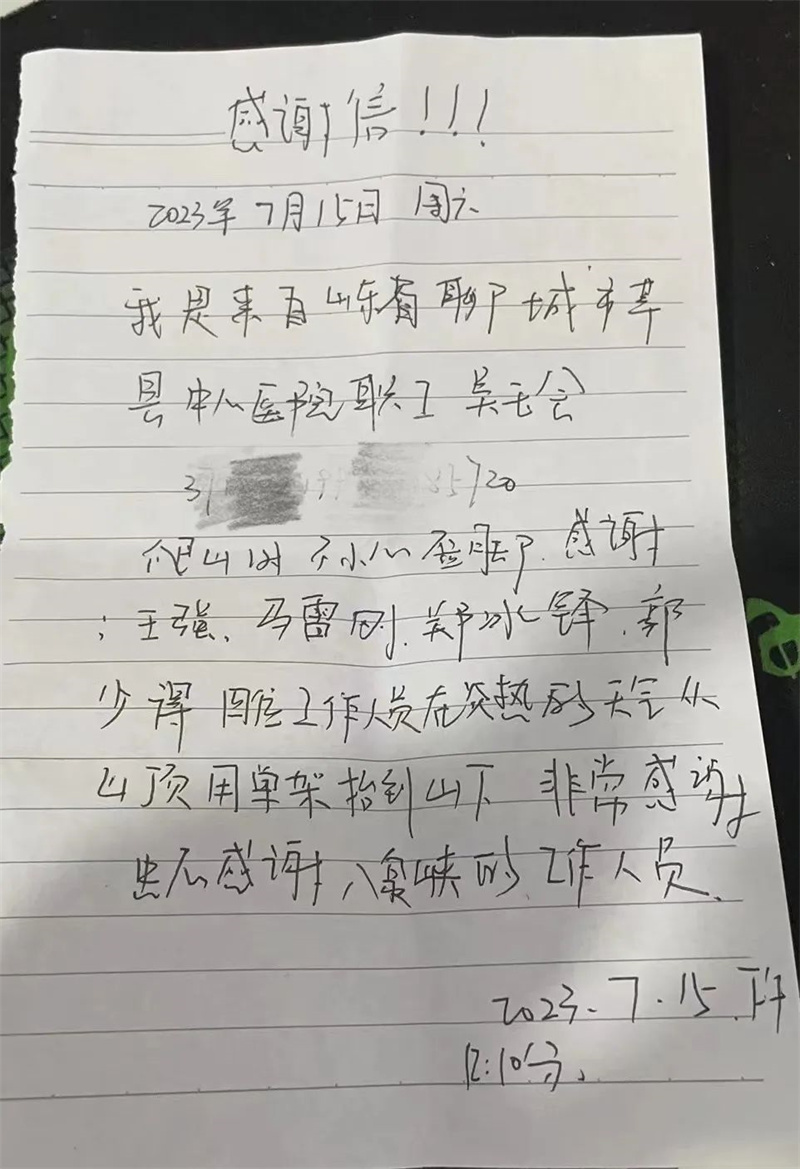 感谢信!!!
2023年7月15日 周六
我是来自山东省聊城市莘
县中心医院职工 吴玉会
37 720
爬山时不小心歪脚.感谢
:王强、马雷刚.郑冰锋.郭
少泽 四位工作人员在炎热的天气从
山顶用单架抬到山下 非常感谢
忠心感谢八泉峡的工作人员.
2023.7.15.下午
12:10分.